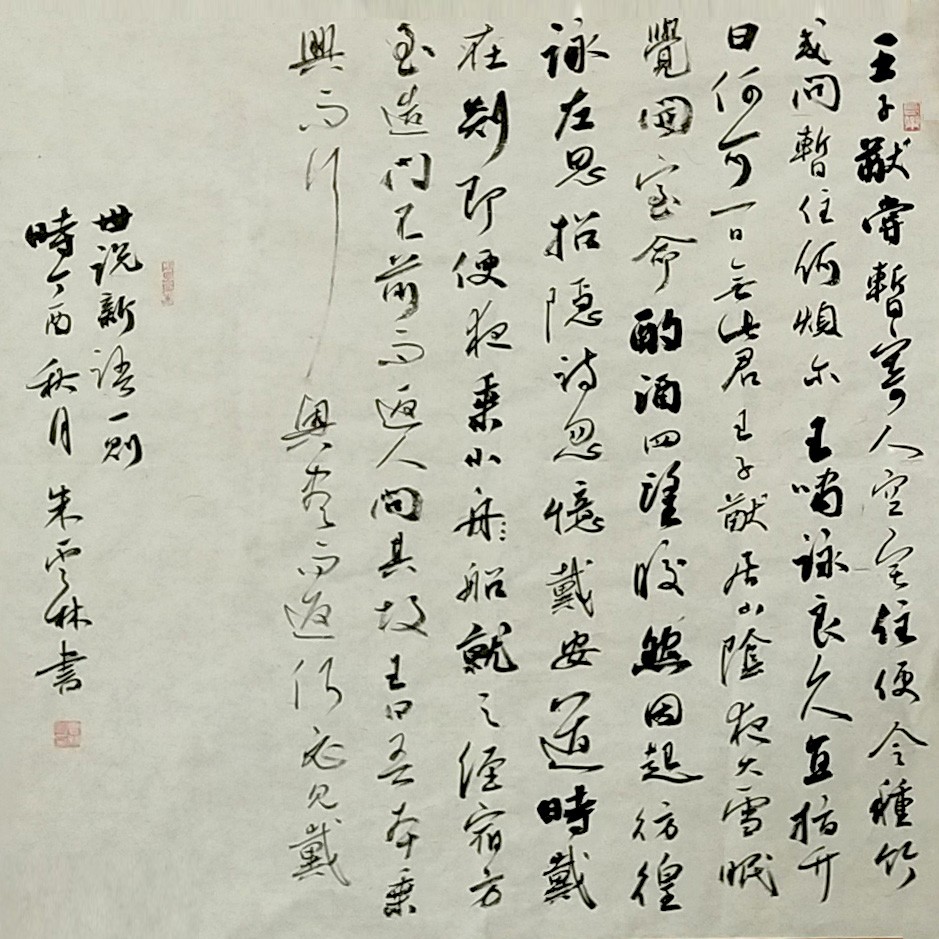 王子猷嘗暫寄人空宅住便令種竹
或問暫住何煩尔王嘯詠良久直指竹
曰何可一日无此君王子猷居山陰夜大雪眠
覺開室命酌酒四望皎然因起彷徨
詠左思招隱詩忽憶戴安道時戴
在剡即便夜乘小舟船就之經宿方
至造門不前而返人問其故王曰吾本乘
興而行興盡而返何必見戴
世説新語一則
時丁酉秋月朱雲林書